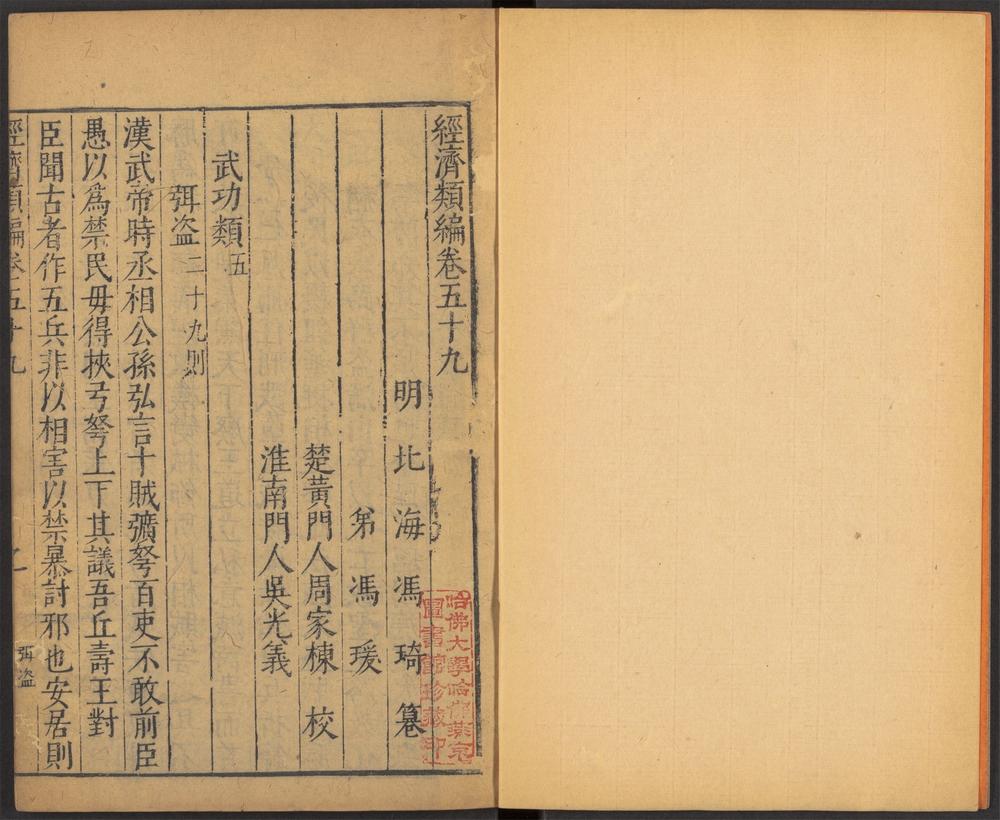 經濟類編卷五十九
明北海馮琦纂
弟馮瑗
楚黃門人周家棟校
淮南門人吳光義
武功類五
弭盜二十九則
漢武帝時丞相公孫弘言十賊彍弩百吏不敢前臣
愚以爲禁民毋得挾弓弩上下其議吾丘壽王對
臣聞古者作五兵非以相害以禁暴討邪也安居則
經濟類編卷五十九
弭盜
哈佛大學哈佛燕京
圖書館珍藏印